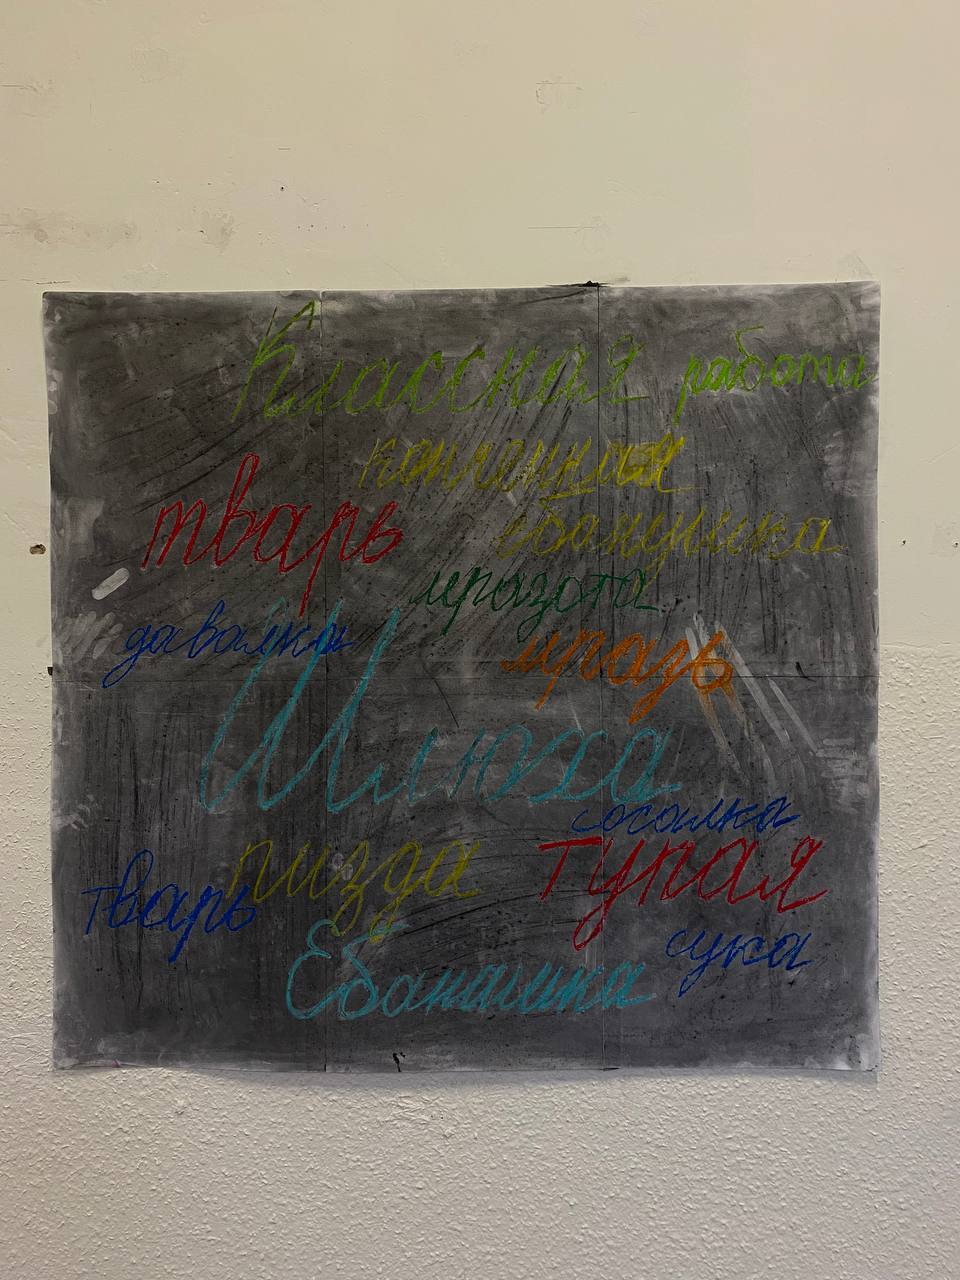 Классная работа
конченная
тварь
ебанушка
мразота
давалка
мразь
Шлюха
сосалка
пизда
тупая
тварь
сука
Ебанашка